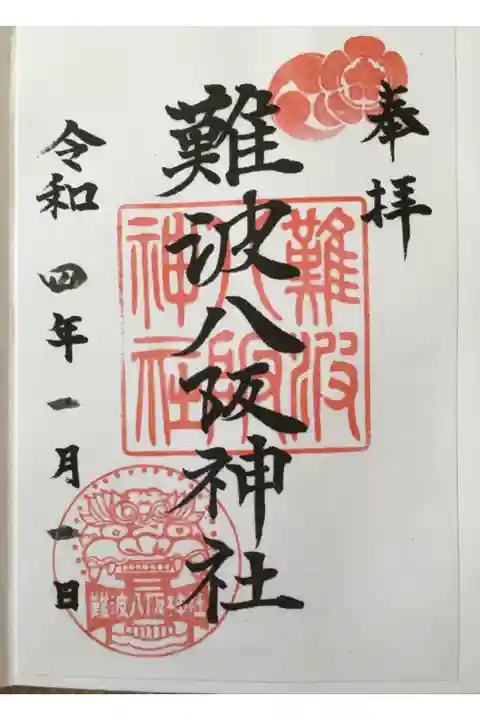 奉拝
難波八阪神社
難波八阪神社
令和四年一月一日
難波八阪神社